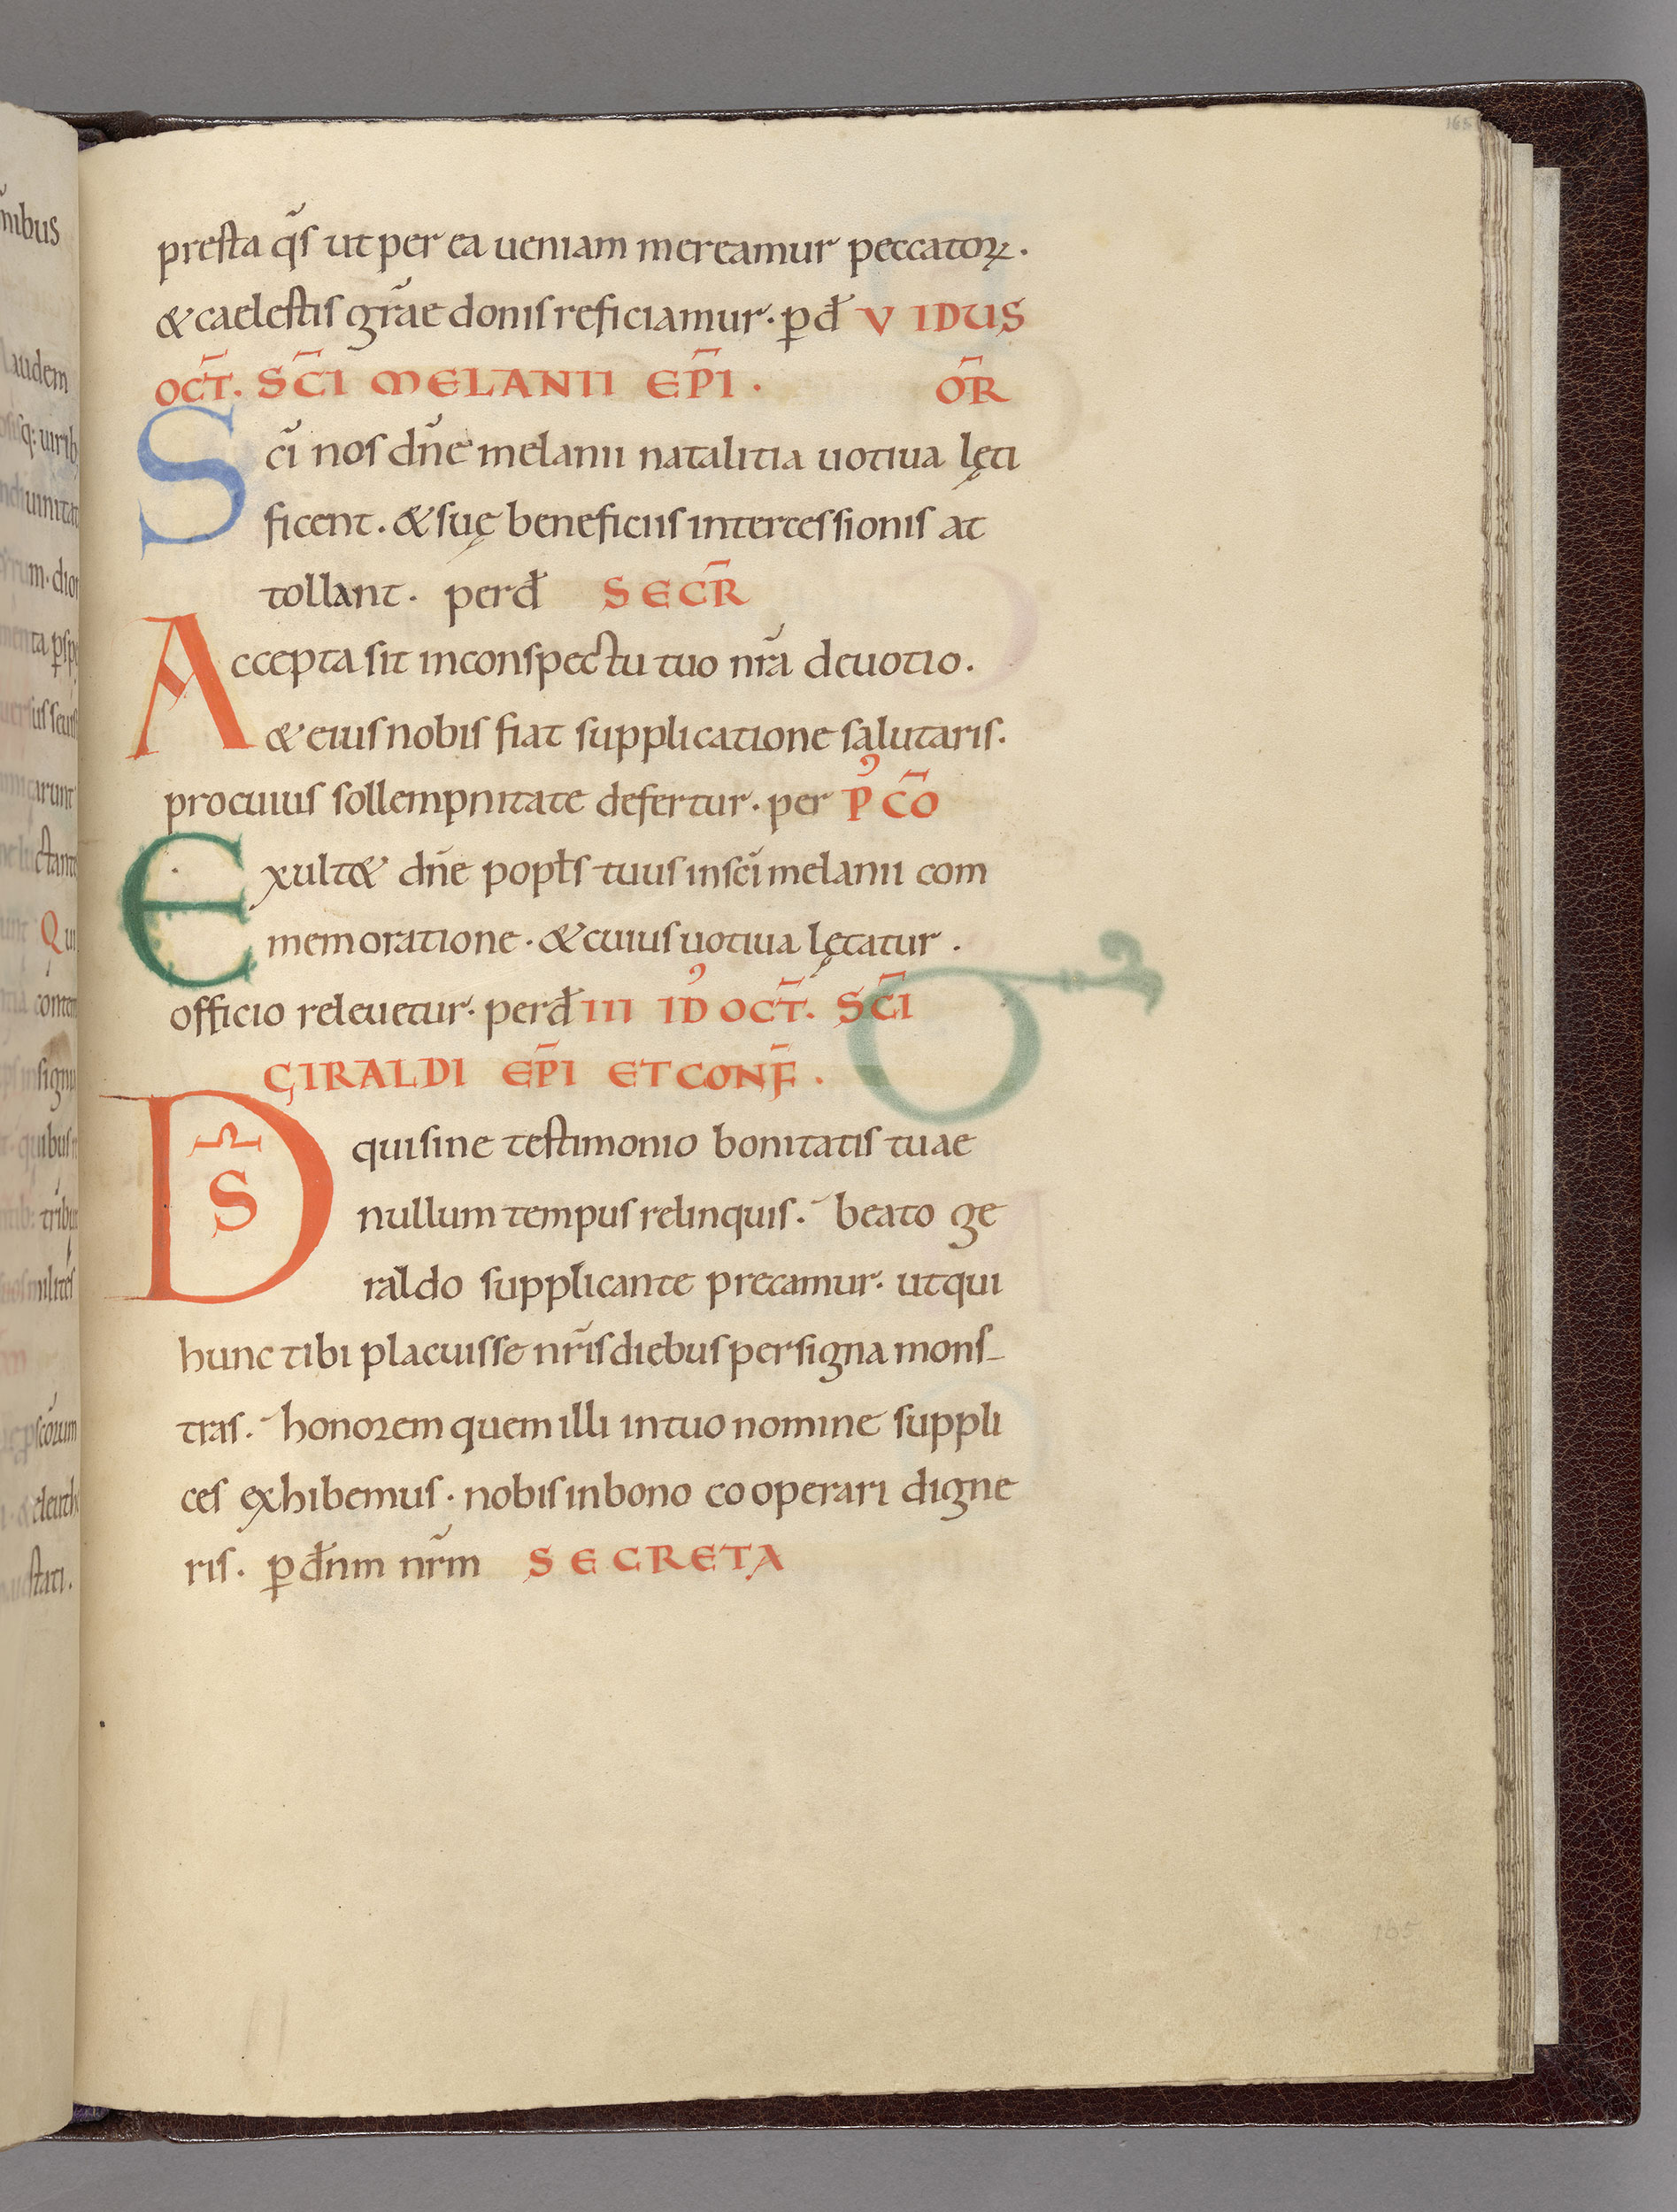 165
presta q̃s ut per ea ueniam mereamur peccatoꝝ.
& caelestis gr̃ae donis reficiamur. ꝑ đ V IDUS
OCT̄. SC̄I MELANII EP̄I. OR̄
Sc̃i nos dñe melanii natalitia uotiua lęti
ficent. & suę beneficiis intercessionis at
tollant. per đ SECR̄
Accepta sit in conspectu tuo nr̃a deuotio.
& eius nobis fiat supplicatione salutaris.
pro cuius sollempnitate defertur. per P᾿ CŌ
Exult& dñe popl̄s tuus in sc̃i melanii com
memoratione. & cuius uotiua lętatur.
officio releuetur. per đ III ID᾿ OCT̄. SC̄I
GIRALDI EP̄I ET CONF̄.
DS̄ qui sine testimonio bonitatis tuae
nullum tempus relinquis. beato ge
raldo supplicante precamur. ut qui
hunc tibi placuisse nr̃is diebus per signa mons-
tras. honorem quem illi in tuo nomine suppli
ces exhibemus. nobis in bono cooperari digne
ris. ꝑ đnm nr̃m SECRETA
165